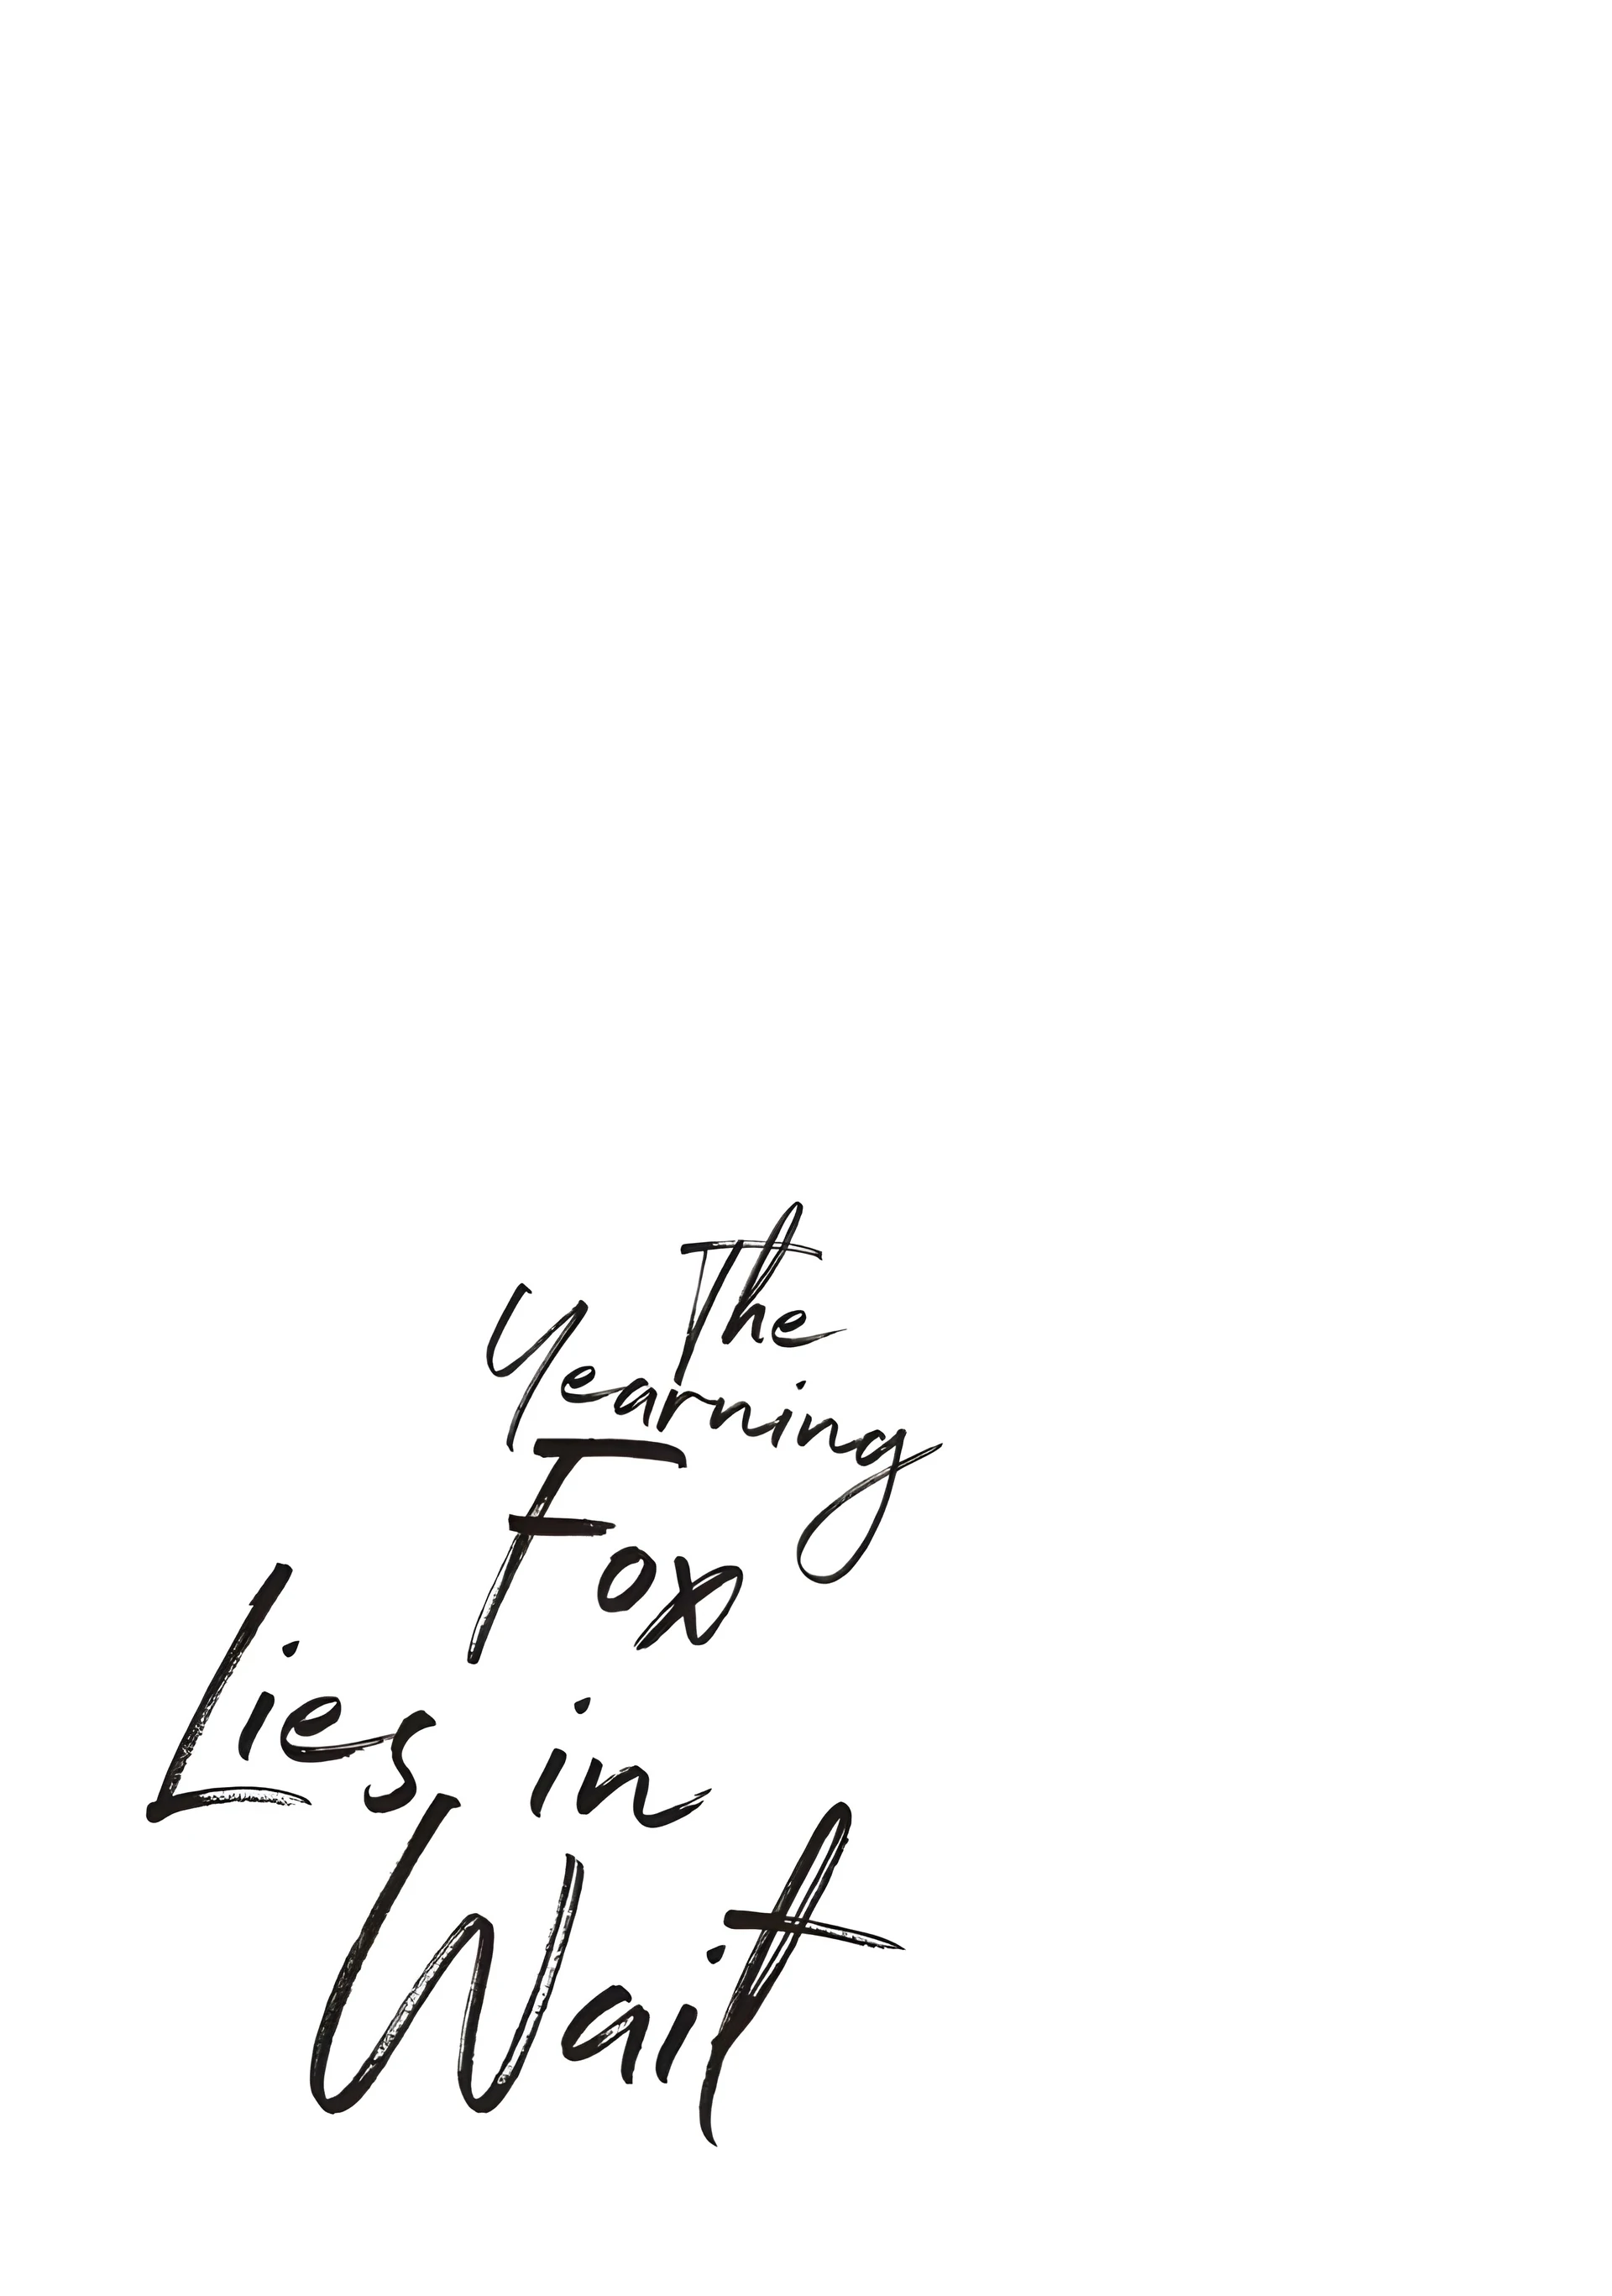 The
Yearning
Fox
Lies in
Wait